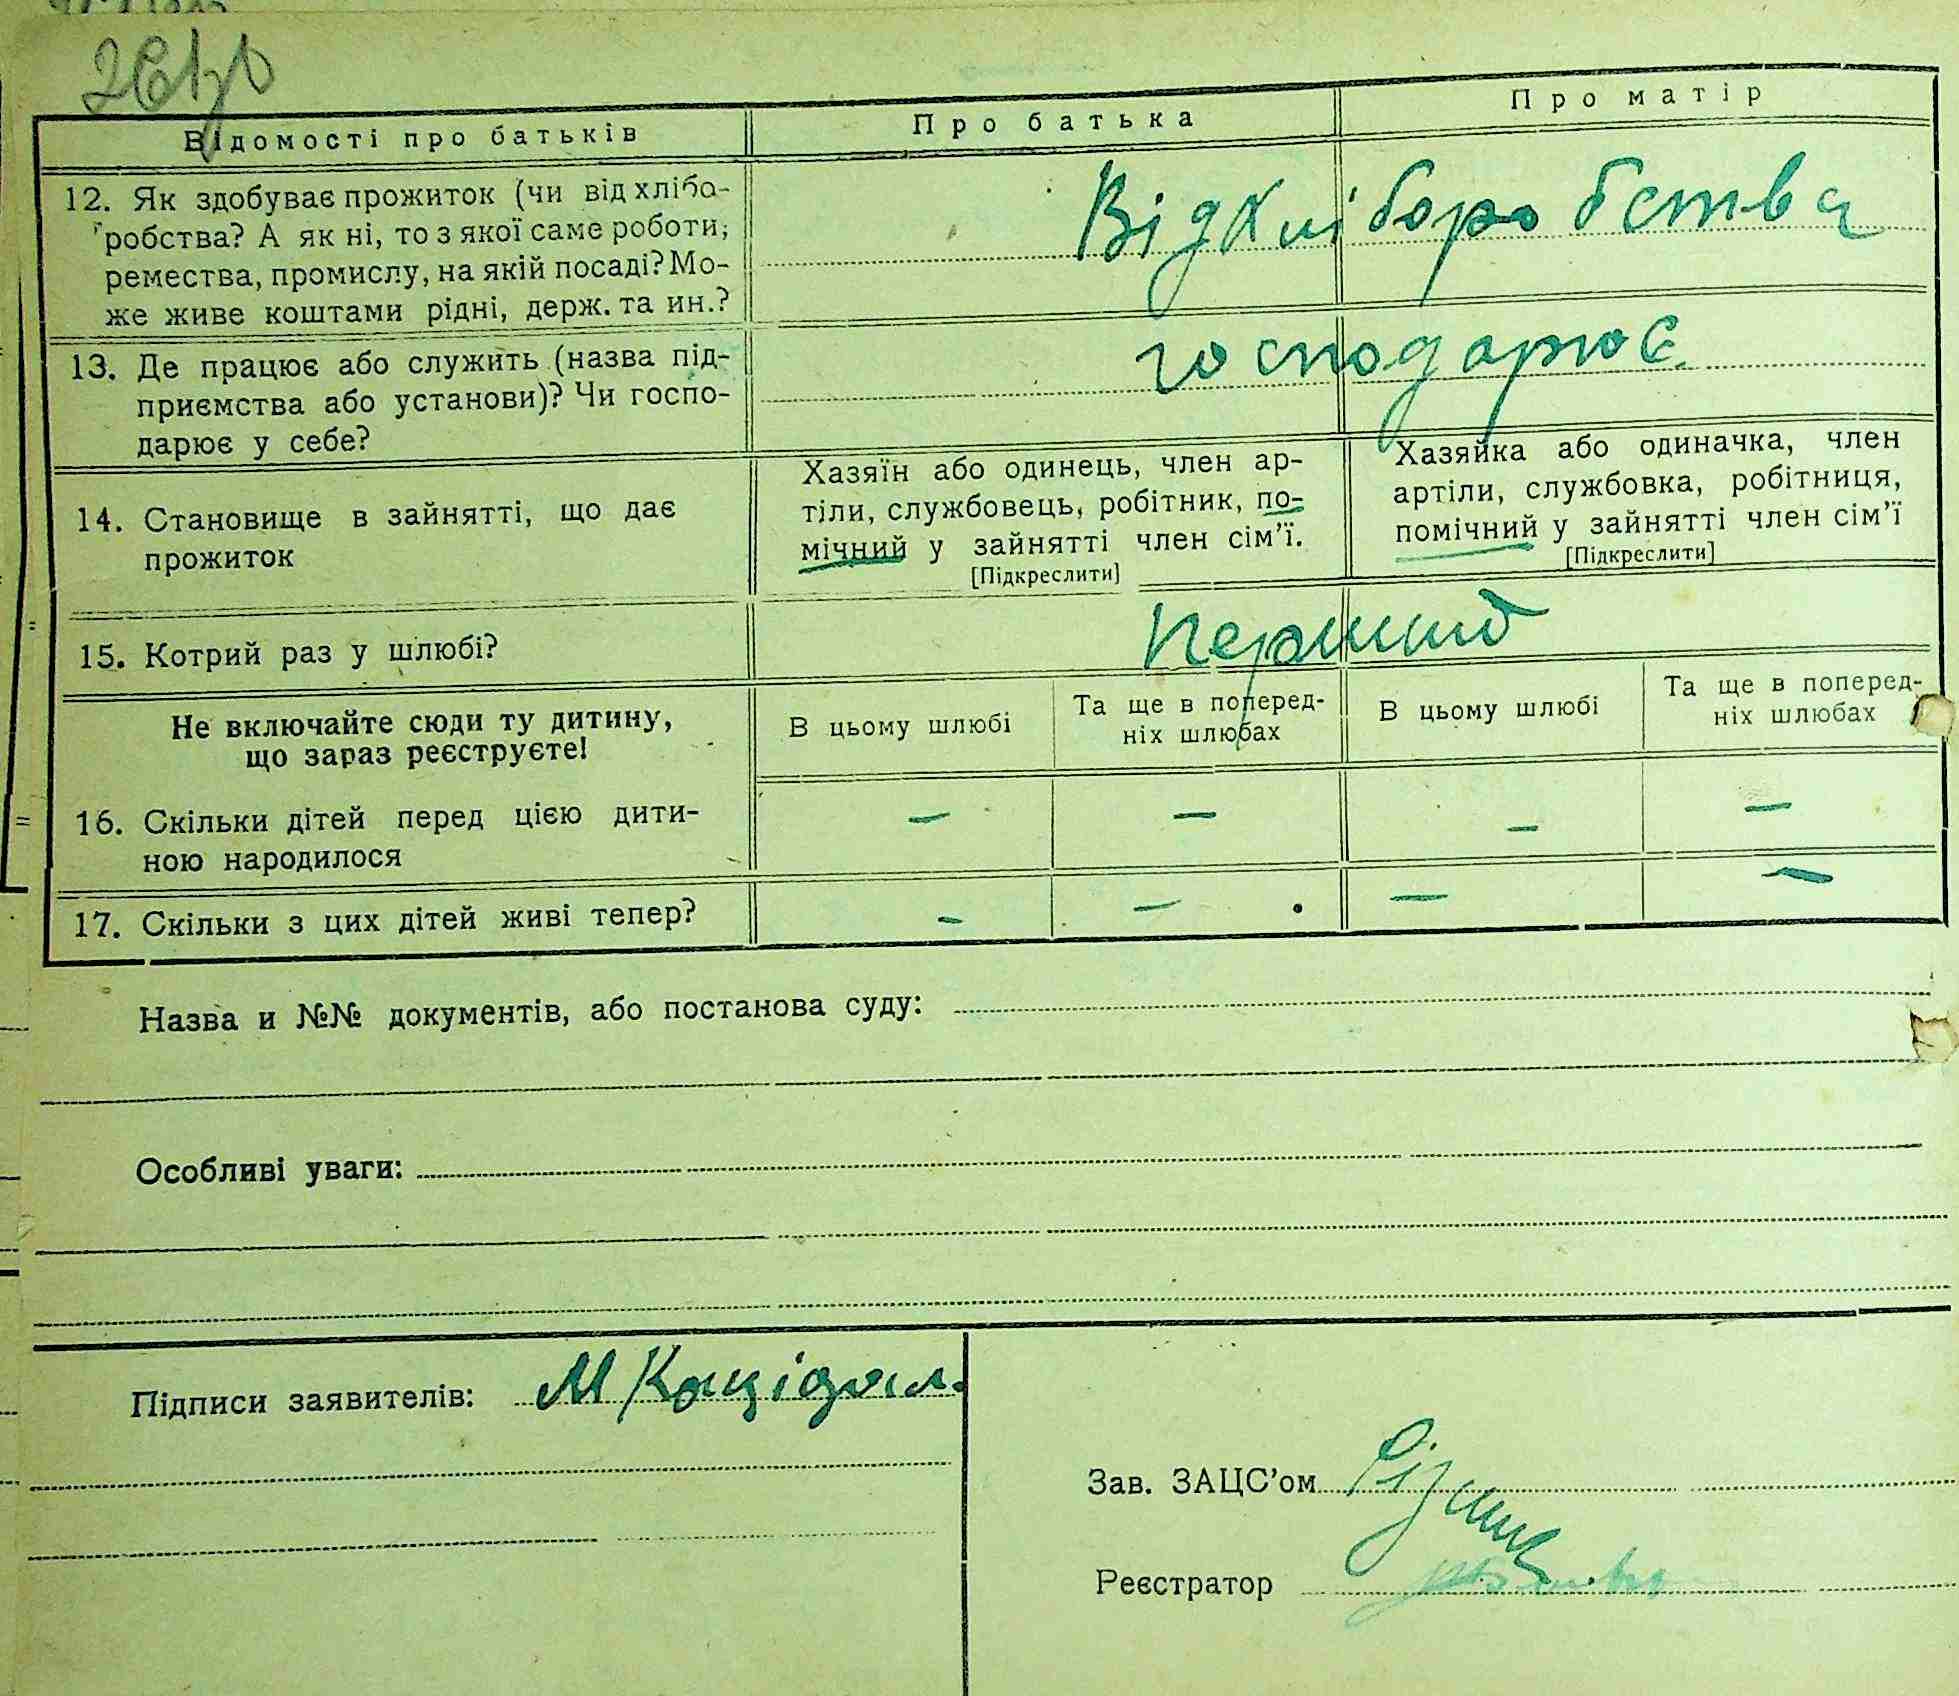 Відомості про батьків
Про батька
Про матір
12. Як здобуває прожиток (чи від хлібо-
робства? А як ні, то з якої саме роботи,
ремества, промислу, на якій посаді? Мо-
же живе коштами рідні, держ. та ин.?
Від Хліборобства
13. Де працює або служить (назва під-
приємства або установи)? Чи госпо-
дарює у себе?
господарює
14. Становище в зайнятті, що дає
прожиток
Хазяїн або одинець, член ар-
тіли, службовець, робітник, по-
мічний у зайнятті член сім'ї.
[Підкреслити]
Хазяйка або одиначка, член
артіли, службовка, робітниця,
помічний у зайнятті член сім'ї
[Підкреслити]
15. Котрий раз у шлюбі?
Перший
Не включайте сюди ту дитину,
що зараз реєструєте!
В цьому шлюбі
Та ще в поперед-
ніх шлюбах
В цьому шлюбі
Та ще в поперед-
ніх шлюбах
16. Скільки дітей перед цією дити-
ною народилося
– – – –
17. Скільки з цих дітей живі тепер?
– – – –
Назва и №№ документів, або постанова суду:
Особливі уваги:
Підписи заявителів:
Зав. ЗАЦС'ом
Реєстратор